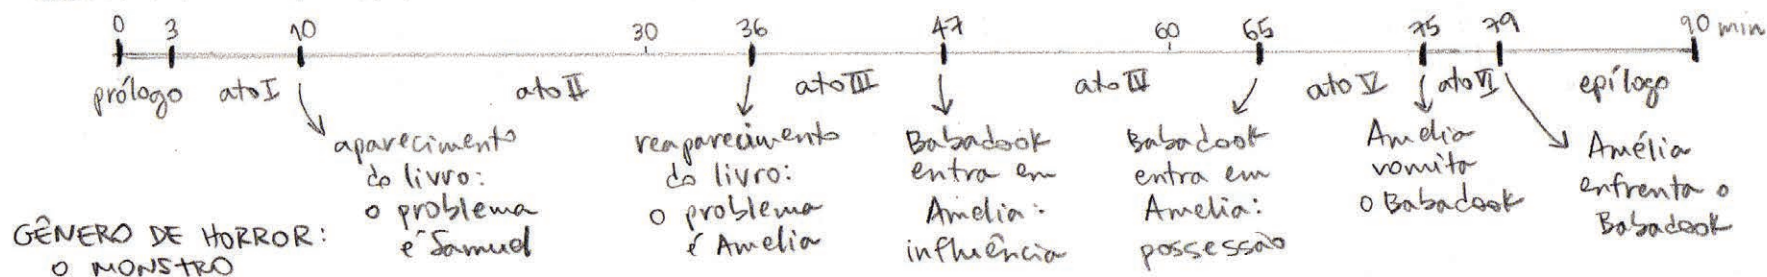 0 3 10 30 36 47 60 65 75 79 90 min
prólogo ato I ato II ato III ato IV ato V ato VI epílogo
aparecimento
do livro:
o problema
é Samuel
reaparecimento
do livro:
o problema
é Amelia
Babadook
entra em
Amelia:
influência
Babadook
entra em
Amelia:
possessão
Amelia
vomita
o Babadook
Amélia
enfrenta o
Babadook
GÊNERO DE HORROR:
O MONSTRO